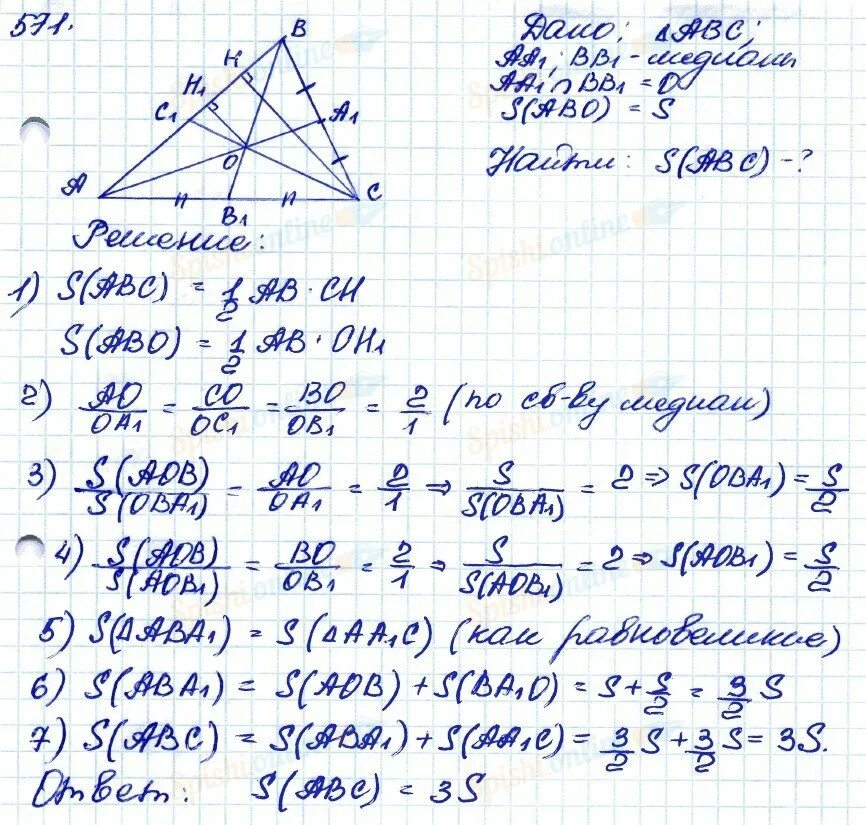 571.
Дано: △ABC;
AA₁; BB₁ - медианы
AA₁ ∩ BB₁ = O
S(ABO) = S
Найти: S(ABC) - ?
B
H
H₁
C₁
A₁
O
A
B₁
C
Решение:
1) S(ABC) = 1/2 AB · CH
S(ABO) = 1/2 AB · OH₁
2) AO/OA₁ = CO/OC₁ = BO/OB₁ = 2/1 (по св-ву медиан)
3) S(AOB)/S(OBA₁) = AO/OA₁ = 2/1 ⇒ S/S(OBA₁) = 2 ⇒ S(OBA₁) = S/2
4) S(AOB)/S(AOB₁) = BO/OB₁ = 2/1 ⇒ S/S(AOB₁) = 2 ⇒ S(AOB₁) = S/2
5) S(△ABA₁) = S(△AA₁C) (как равновеликие)
6) S(ABA₁) = S(AOB) + S(BA₁O) = S + S/2 = 3/2 S
7) S(ABC) = S(ABA₁) + S(AA₁C) = 3/2 S + 3/2 S = 3S.
Ответ: S(ABC) = 3S